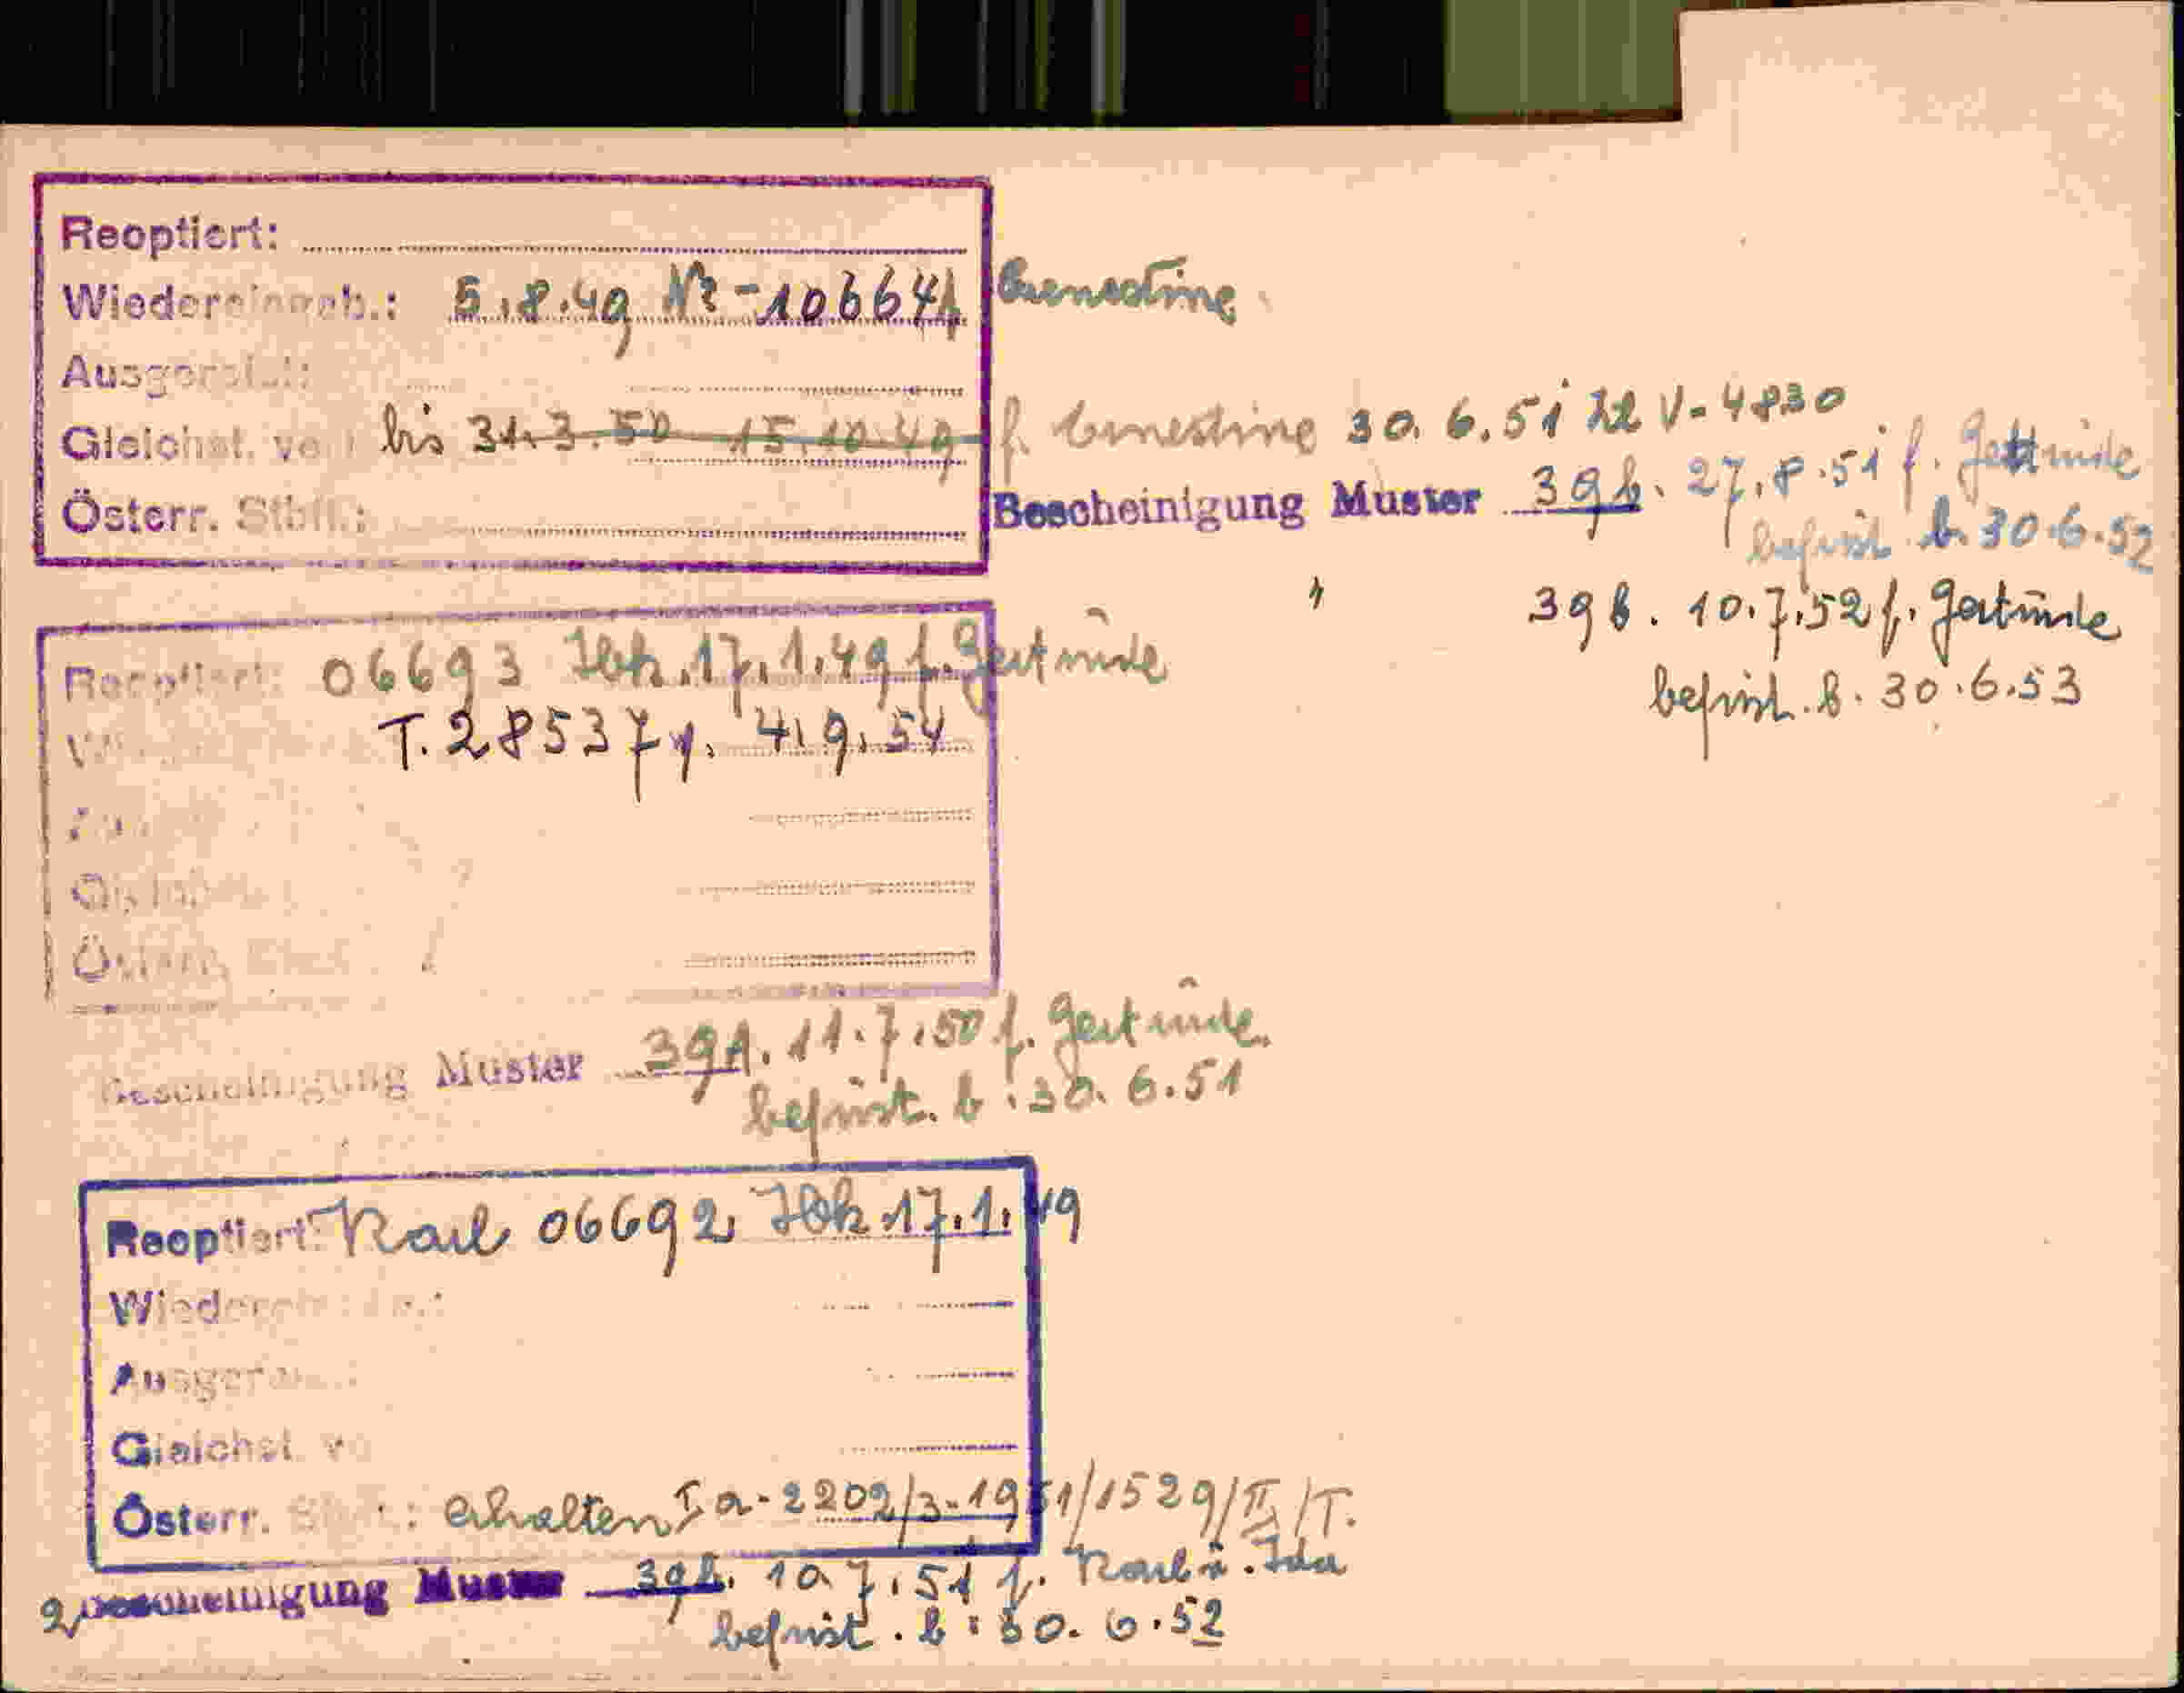 Reoptiert:
Wiedereingeb.: 5.8.49 Nr-10664 Ernestine
Ausgereist:
Gleichst. v. bis 31.3.50 15.10.49 f. Ernestine 30.6.51 V-4830
Österr. Stb.:
Bescheinigung Muster 39b. 27.8.51 f. Gertrude
befrist. b. 30.6.52
" 39b. 10.7.52 f. Gertrude
befrist. b. 30.6.53
Reoptiert: 06693 Ibk. 17.1.49 f. Gertrude
T. 28537 4.9.54
Bescheinigung Muster 39A. 11.7.50 f. Gertrude
befrist. b. 30.6.51
Reoptiert: Karl 06692 Ibk 17.1.49
Wiedereingeb.:
Ausgereist:
Gleichst. v.
Österr. : erhalten, I a-2202/3-1951/1529/II/T.
2 Bescheinigung Muster 39b. 10.7.51 f. Karl u. Ida
befrist. b. 30.6.52